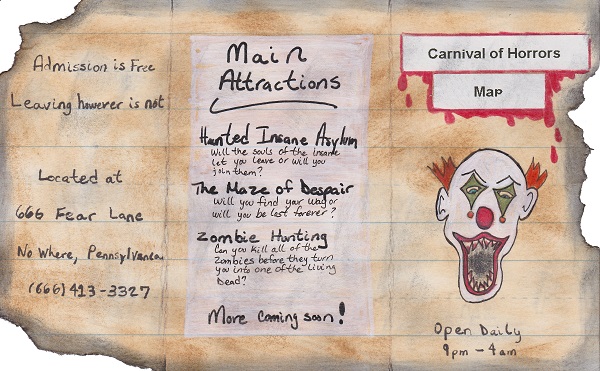 Admission is Free
Leaving however is not
Located at
666 Fear Lane
No Where, Pennsylvania
(666) 413-3327
Main
Attractions
Haunted Insane Asylum
Will the souls of the insane
let you leave or will you
join them?
The Maze of Despair
Will you find your way or
will you be lost forever?
Zombie Hunting
Can you kill all of the
Zombies before they turn
you into one of the living
Dead?
More coming soon!
Carnival of Horrors
Map
Open Daily
9pm - 4am